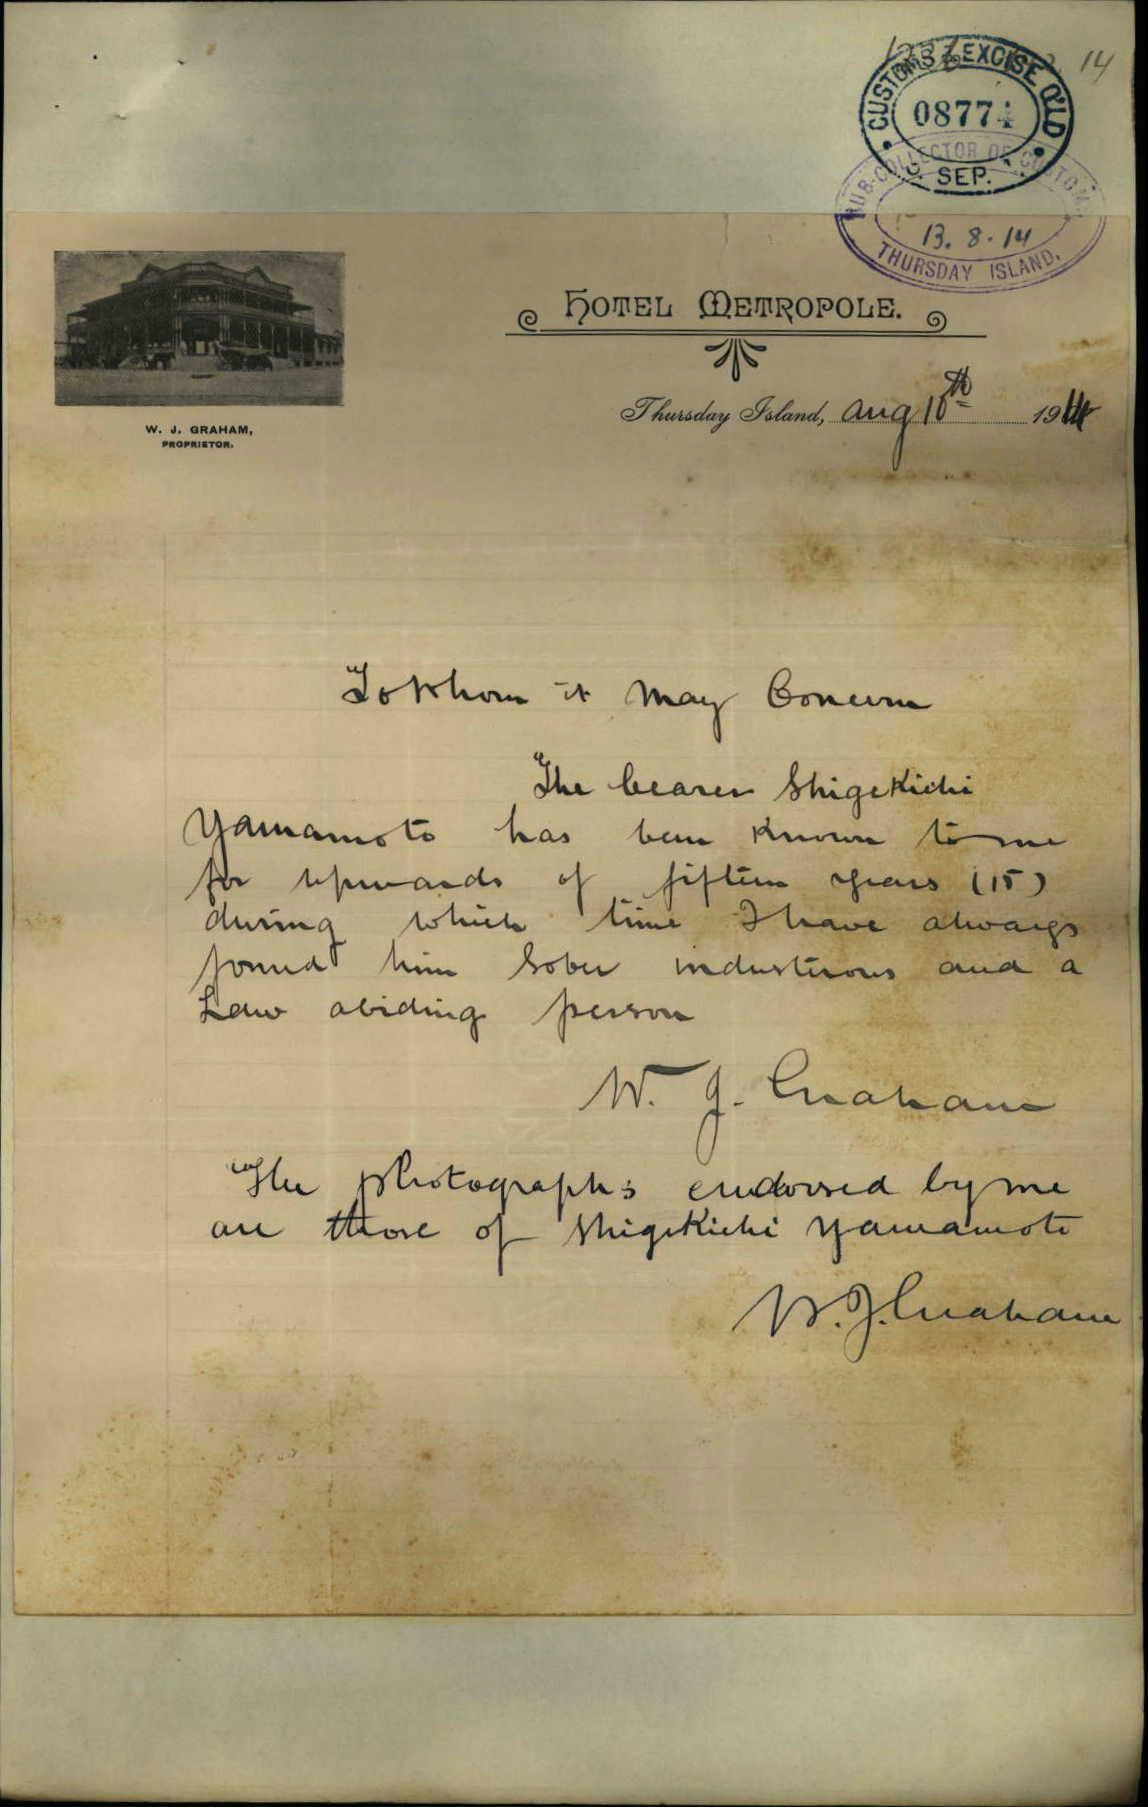 14
CUSTOMS & EXCISE Q'LD
08774
SEP.
SUB-COLLECTOR OF CUSTOMS
13. 8. 14
THURSDAY ISLAND.
HOTEL METROPOLE.
Thursday Island, Aug 10th 1914
W. J. GRAHAM,
PROPRIETOR.
To Whom it May Concern
The bearer Shigekichi
Yamamoto has been Known to me
for upwards of fifteen years (15)
during which time I have always
found him Sober industirous and a
Law abiding person
W. J. Graham
The photographs endorsed by me
are those of Shigekichi Yamamoto
W. J. Graham